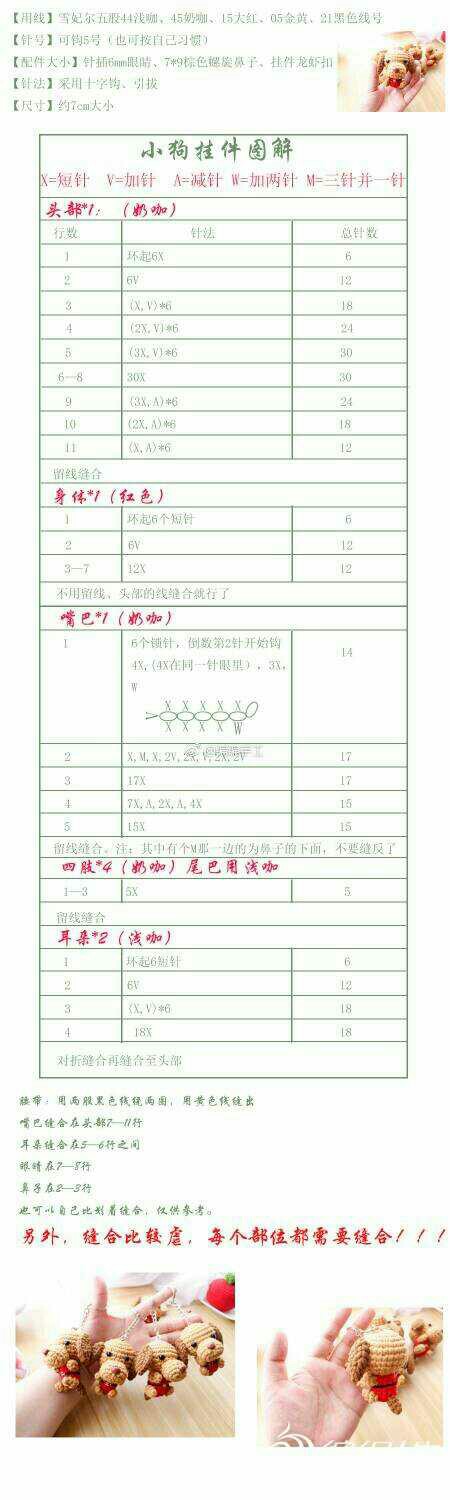 【用线】雪妃尔五股44浅咖、45奶咖、15大红、05金黄、21黑色线号
【针号】可钩5号（也可按自己习惯）
【配件大小】针插6mm眼睛、7*9棕色螺旋鼻子、挂件龙虾扣
【针法】采用十字钩、引拔
【尺寸】约7cm大小
小狗挂件图解
X=短针 V=加针 A=减针 W=加两针 M=三针并一针
头部*1：（奶咖）
行数 针法 总针数
1 环起6X 6
2 6V 12
3 (X,V)*6 18
4 (2X,V)*6 24
5 (3X,V)*6 30
6—8 30X 30
9 (3X,A)*6 24
10 (2X,A)*6 18
11 (X,A)*6 12
留线缝合
身体*1（红色）
1 环起6个短针 6
2 6V 12
3—7 12X 12
不用留线、头部的线缝合就行了
嘴巴*1（奶咖）
1 6个锁针，倒数第2针开始钩 14
4X,(4X在同一针眼里），3X，
W
X X X X X
X X X X W
2 X,M,X,2V,2X,V,2X,2V 17
3 17X 17
4 7X,A,2X,A,4X 15
5 15X 15
留线缝合。注：其中有个M那一边的为鼻子的下面，不要缝反了
四肢*4（奶咖）尾巴用浅咖
1—3 5X 5
留线缝合
耳朵*2（浅咖）
1 环起6短针 6
2 6V 12
3 (X,V)*6 18
4 18X 18
对折缝合再缝合至头部
腰带：用两股黑色线绕两圈，用黄色线缝出
嘴巴缝合在头部7—11行
耳朵缝合在5—6行之间
眼睛在7—8行
鼻子在2—3行
也可以自己比划着缝合，仅供参考。
另外，缝合比较虐，每个部位都需要缝合！！！